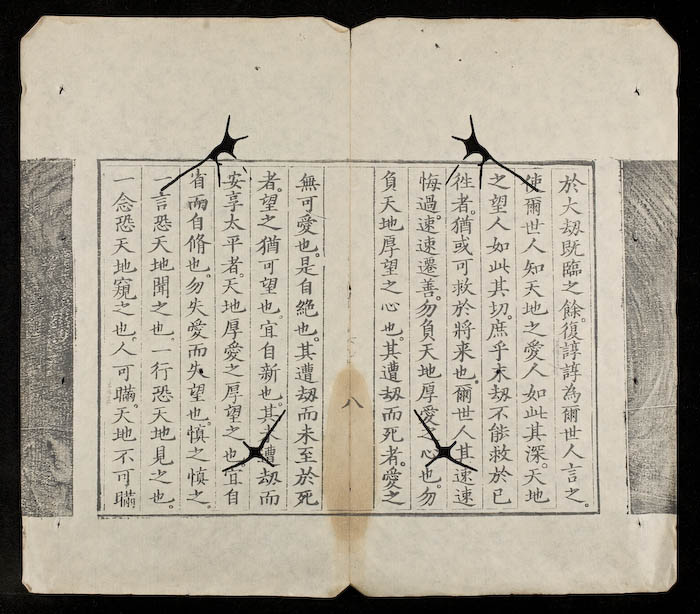 於大劫既臨之餘。復諄諄為爾世人言之。
使爾世人知天地之愛人如此其深。天地
之望人如此其切。庶乎末劫不能救於已
徃者。猶或可救於將来也。爾世人其速速
悔過。速速遷善。勿負天地厚愛之心也。勿
負天地厚望之心也。其遭劫而死者。愛之
八
無可愛也。是自絶也。其遭劫而未至於死
者。望之猶可望也。宜自新也。其未遭劫而
安享太平者。天地厚愛之厚望之也。宜自
省而自脩也。勿失愛而失望也。慎之慎之。
一言恐天地聞之也。一行恐天地見之也。
一念恐天地窺之也。人可瞞。天地不可瞞